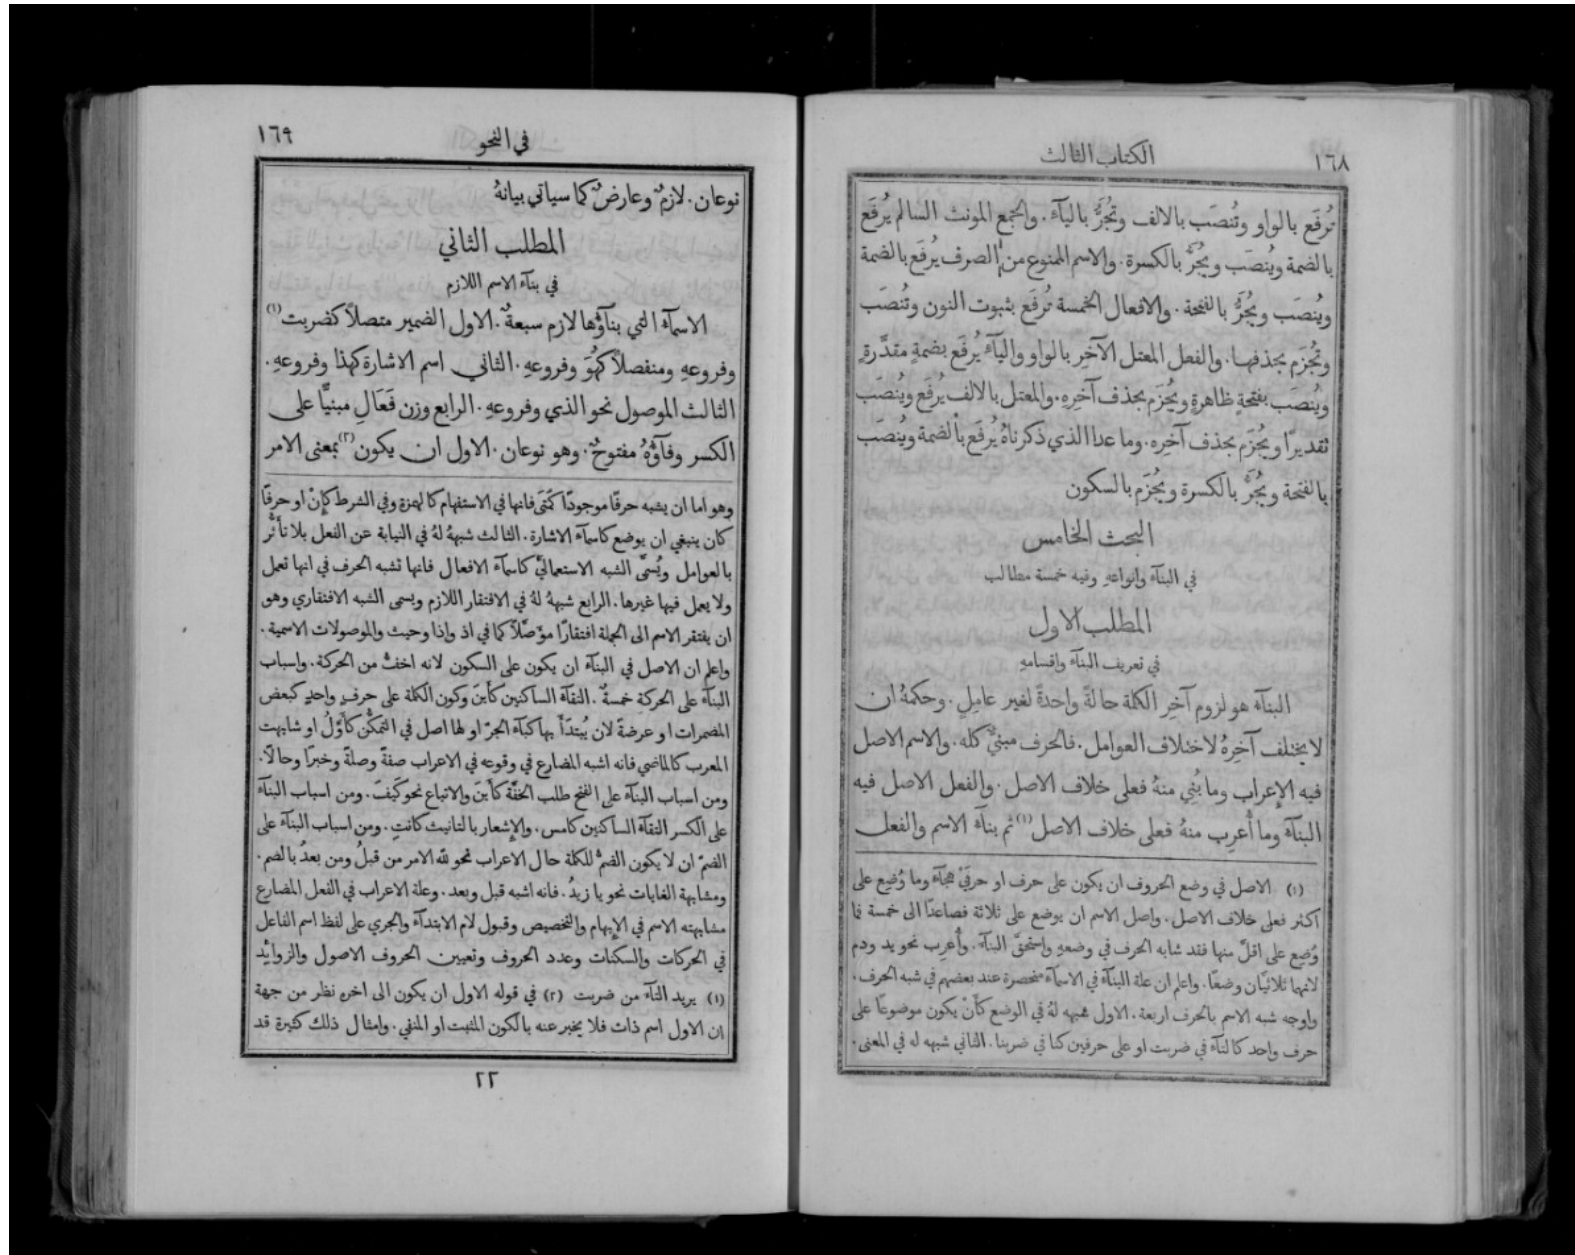 ١٦٨
الكتاب الثالث
تُرفَع بالواو وتُنصَب بالالف وتُجَرُّ باليآء. والجمع المونث السالم يُرفَع
بالضمة ويُنصَب ويُجَرُّ بالكسرة. والاسم الممنوع من الصرف يُرفَع بالضمة
ويُنصَب ويُجَرُّ بالفتحة. والافعال الخمسة تُرفَع بثبوت النون وتُنصَب
وتُجزَم بحذفها. والفعل المعتل الآخِر بالواو واليآء يُرفَع بضمةٍ مقدَّرةٍ
ويُنصَب بفتحةٍ ظاهرةٍ ويُجزَم بحذف آخِرِهِ. والمعتل بالالف يُرفَع ويُنصَب
تقديرًا ويُجزَم بحذف آخِرِه. وما عدا الذي ذكرناهُ يُرفَع بالضمة ويُنصَب
بالفتحة ويُجَرُّ بالكسرة ويُجزَم بالسكون
البحث الخامس
في البنآء وانواعهِ وفيه خمسة مطالب
المطلب الاول
في تعريف البنآء واقسامهِ
البنآء هو لزوم آخِر الكلمة حالةً واحدةً لغير عاملٍ. وحكمهُ ان
لا يختلف آخِرهُ لاختلاف العوامل. فالحرف مبنيٌّ كله. والاسم الاصل
فيه الإعراب وما بُنِي منهُ فعلى خلاف الاصل. والفعل الاصل فيه
البنآء وما أُعرِب منهُ فعلى خلاف الاصل(١) ثم بنآء الاسم والفعل
(١) الاصل في وضع الحروف ان يكون على حرف او حرفَيْ هجآء وما وُضِع على
اكثر فعلى خلاف الاصل. واصل الاسم ان يوضع على ثلاثة فصاعدًا الى خمسة فما
وُضِع على اقلّ منها فقد شابه الحرف في وضعهِ واستحقّ البنآء. وأُعرِب نحو يد ودم
لانهما ثلاثيَّان وضعًا. واعلم ان علة البنآء في الاسمآء منحصرة عند بعضهم في شبه الحرف.
واوجه شبه الاسم بالحرف اربعة. الاول شبهه لهُ في الوضع كأَنْ يكون موضوعًا على
حرف واحد كالتآء في ضربت او على حرفين كنا في ضربنا. الثاني شبهه له في المعنى.
١٦٩
في النحو
نوعان. لازمٌ وعارضٌ كما سياتي بيانهُ
المطلب الثاني
في بنآء الاسم اللازم
الاسمآء التي بنآؤها لازم سبعةٌ. الاول الضمير متصلاً كضربت(١)
وفروعهِ ومنفصلاً كهُوَ وفروعهِ. الثاني اسم الاشارة كهذا وفروعهِ.
الثالث الموصول نحو الذي وفروعهِ. الرابع وزن فَعَالِ مبنيًّا على
الكسر وفآؤُهُ مفتوحٌ. وهو نوعان. الاول ان يكون(٢) بمعنى الامر
وهو اما ان يشبه حرفًا موجودًا كَمَتَى فانها في الاستفهام كالهمزة وفي الشرط كإِنْ او حرفًا
كان ينبغي ان يوضع كاسمآء الاشارة. الثالث شبههُ لهُ في النيابة عن الفعل بلا تأَثُّر
بالعوامل ويُسمَّى الشبه الاستعماليَّ كاسمآء الافعال فانها تشبه الحرف في انها تعمل
ولا يعمل فيها غيرها. الرابع شبههُ لهُ في الافتقار اللازم ويسمى الشبه الافتقاري وهو
ان يفتقر الاسم الى الجملة افتقارًا موَّصّلاً كما في اذ واذا وحيث والموصولات الاسمية.
واعلم ان الاصل في البنآء ان يكون على السكون لانه اخفُّ من الحركة. واسباب
البنآء على الحركة خمسةٌ. التقآء الساكنين كأَينَ وكون الكلمة على حرفٍ واحدٍ كبعض
المضمرات او عرضةً لان يُبتدَأَ بها كبآء الجرّ او لها اصل في التمكُّن كأَوَّلُ او شابهت
المعرب كالماضي فانه اشبه المضارع في وقوعه في الاعراب صفةً وصلةً وخبرًا وحالاً.
ومن اسباب البنآء على الفتح طلب الخفَّة كأَينَ والاتباع نحو كَيفَ. ومن اسباب البنآء
على الكسر التقآء الساكنين كامس. والإشعار بالتانيث كانتِ. ومن اسباب البنآء على
الضمّ ان لا يكون الضمُّ للكلمة حال الاعراب نحو لله الامر من قبلُ ومن بعدُ بالضم.
ومشابهة الغايات نحو يا زيدُ. فانه اشبه قبل وبعد. وعلة الاعراب في الفعل المضارع
مشابهته الاسم في الإبهام والتخصيص وقبول لام الابتدآء والجري على لفظ اسم الفاعل
في الحركات والسكنات وعدد الحروف وتعيين الحروف الاصول والزوائد
(١) يريد التآء من ضربت (٢) في قوله الاول ان يكون الى اخرهِ نظر من جهة
ان الاول اسم ذات فلا يخبر عنه بالكون المثبت او المنفي. وامثال ذلك كثيرة قد
٢٢